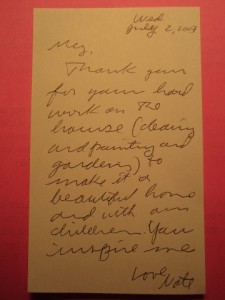 Wed
July 2, 2009
Meg,
Thank you
for your hard
work on the
house (cleaing
and painting and
gardens) to
make it a
beautiful home
and with our
children. You
inspire me
Love, Nate